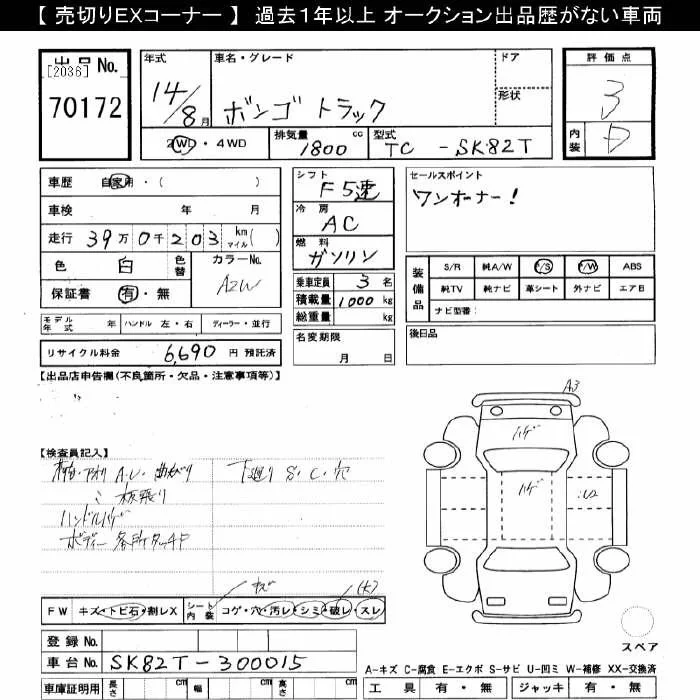 【 売切りEXコーナー 】 過去1年以上 オークション出品歴がない車両
出品 No.
[2036]
70172
年式
14/8月
車名・グレード
ボンゴ トラック
ドア
形状
評価点
3
内装
D
2WD・4WD
排気量 1800 cc
型式 TC - SK82T
車歴 自家用・( )
車検 年 月
走行 39万0千203 km マイル( )
色 白 色替
カラーNo. A2W
保証書 有・無
シフト
F5速
冷房
AC
燃料
ガソリン
乗車定員 3 名
積載量 1000 kg
総重量 kg
セールスポイント
ワンオーナー!
装備品
S/R 純A/W P/S P/W ABS
純TV 純ナビ 革シート 外ナビ エアB
ナビ型番:
モデル年式 年 ハンドル 左・右 ディーラー・並行
リサイクル料金 6,690 円 預託済
名変期限
月 日
後日品
【出品店申告欄(不良箇所・欠品・注意事項等)】
A3
【検査員記入】
アオリ A・U・曲がり
下廻り S・C・穴
板張り
ハンドルハゲ
ボディー各所タッチP
ハゲ
ハゲ
U2
キズ
(大)
FW キズ・トビ石・割レX
シート内装 コゲ・穴・汚レ・シミ・破レ・スレ
登録 No.
車台 No. SK82T-300015
車庫証明用 長さ cm 幅 cm 高さ cm
スペア
A-キズ C-腐食 E-エクボ S-サビ U-凹ミ W-補修 XX-交換済
工具 有・無 ジャッキ 有・無